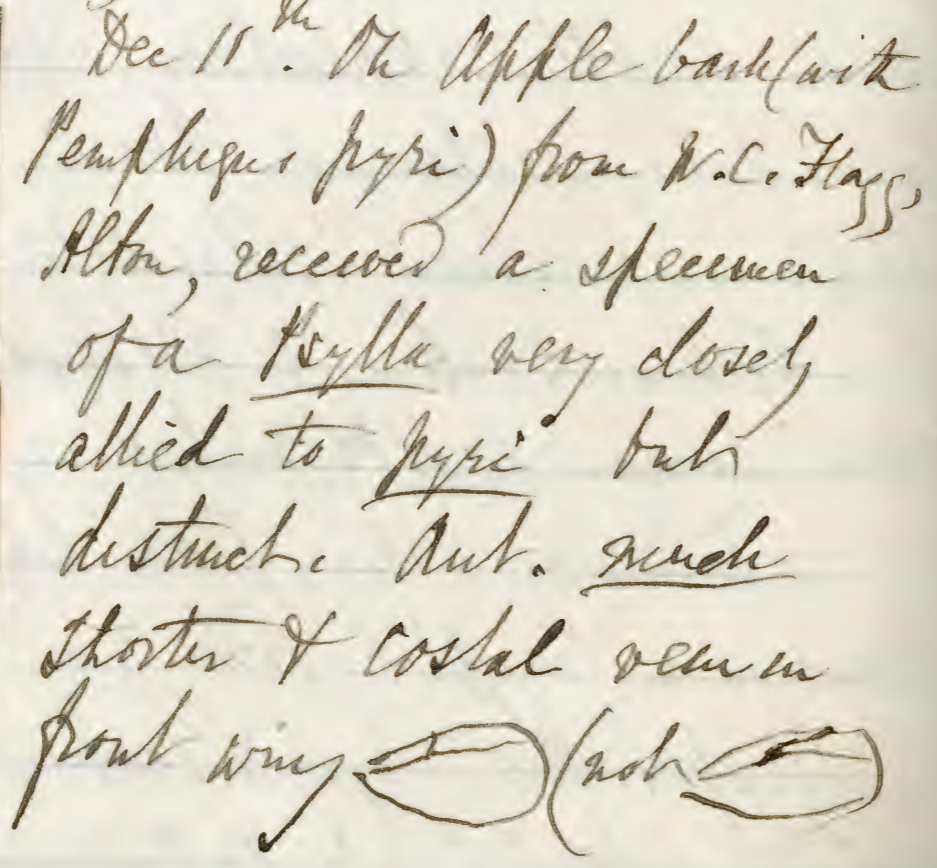 Dec 18th. On Apple bark (with
Pemphigus pyri) from W.C. Flagg,
Alton, received a specimen
of a Psylla very closely
allied to pyri but
distinct. Ant. much
shorter & costal vein in
front wing (not